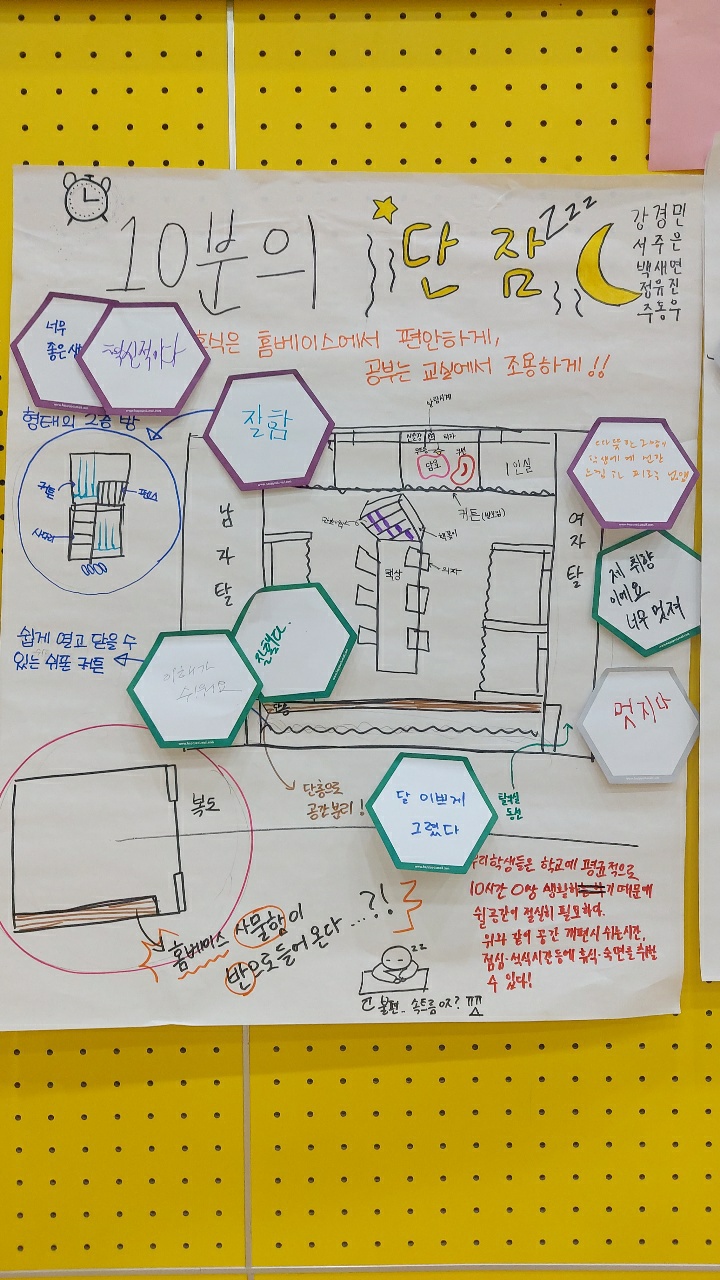 10분의 단잠
zzz
강경민
서주은
백새면
정유진
주동우
휴식은 홈베이스에서 편안하게,
공부는 교실에서 조용하게!!
너무
좋은 생
혁신적이다
잘함
형태의 2층 방
커튼
사다리
담요
쿠션
1인실
커튼
책꽂이
의자
책상
남
자
탈
여
자
탈
제 취향
이에요
너무 멋져
멋지다
쉽게 열고 닫을 수
있는 쉬폰 커튼
이해가
쉬워요
잘했다.
단층으로
공간분리!
달 이쁘게
그렸다
탈의실
동선
복도
홈베이스 사물함이
반으로 들어온다...?!
zz
불편..
우리학생들은 학교에 평균적으로
10시간 이상 생활하기 때문에
쉴 공간이 절실히 필요하다.
위와 같이 공간 개편시 쉬는시간,
점심·석식시간 등에 휴식·숙면을 취할
수 있다!